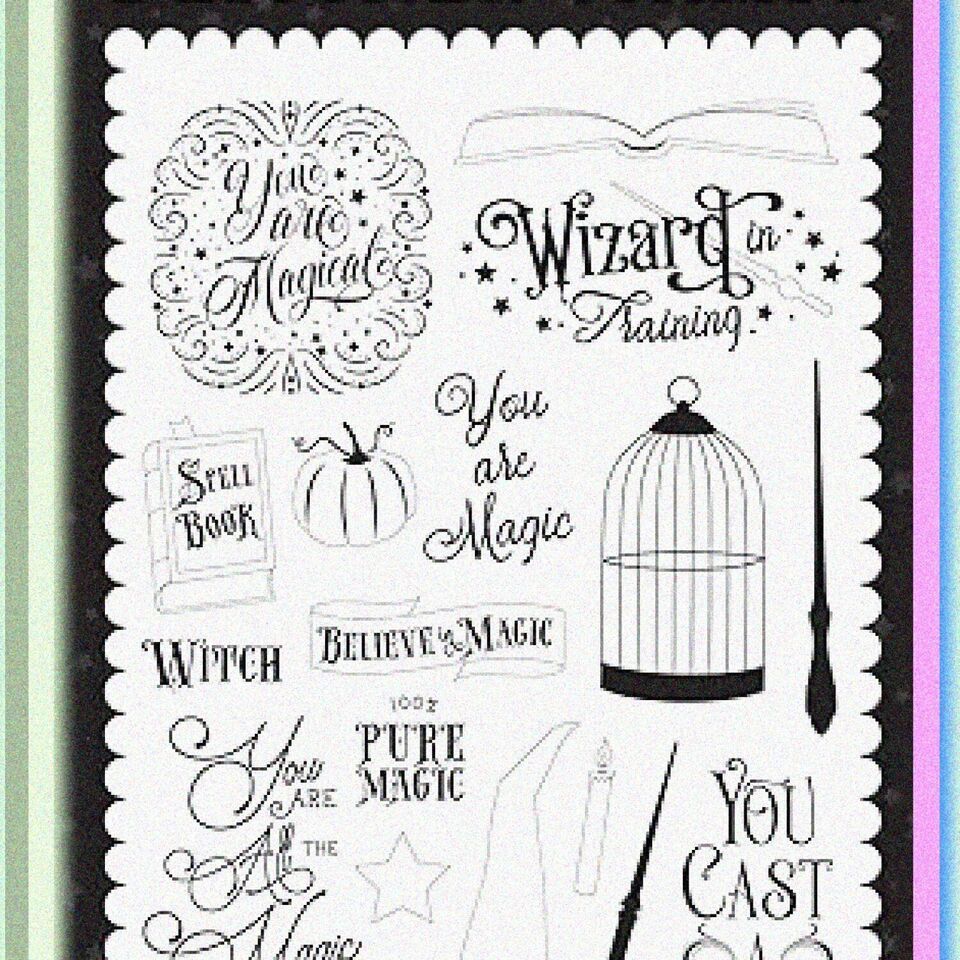 You
are
Magical
Wizard in
Training
You
are
Magic
Spell
Book
Believe in Magic
Witch
100%
Pure
Magic
You
are
All the
Magic
You
Cast